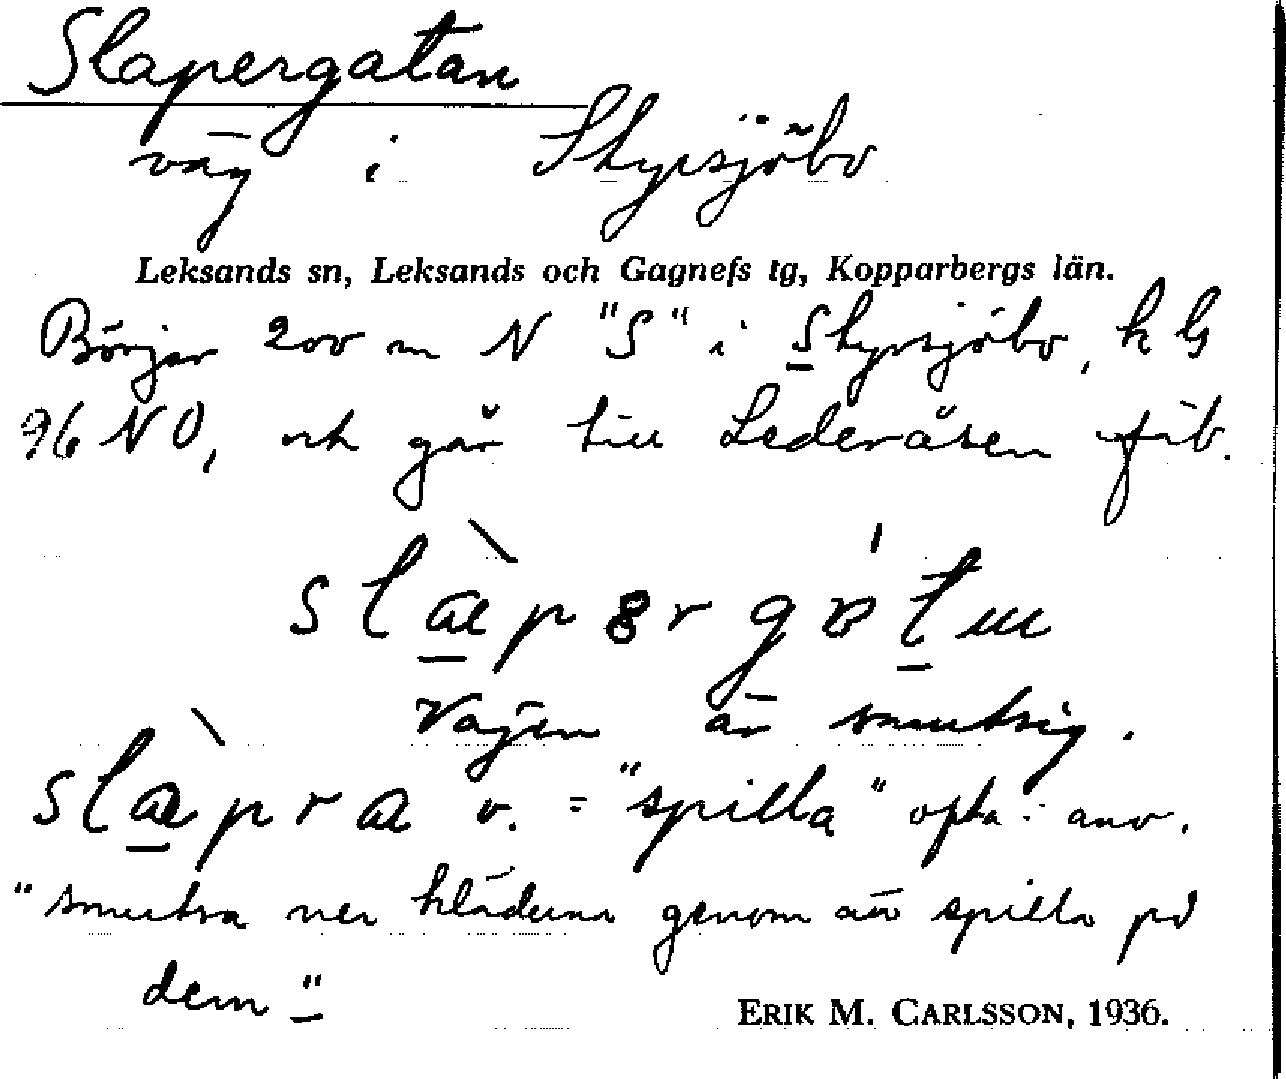 Slapergatan
väg i Skyrsjöbo
Leksands sn, Leksands och Gagnefs tg, Kopparbergs län.
Börjar 200 m N "S" i Skyrsjöbo, k G
96 NO, och går till Lederåsen fäb.
Vägen är smutsig.
slæpra v. = "spilla" ofta i anv.
"smutsa ner kläderna genom att spilla på
dem"
ERIK M. CARLSSON, 1936.